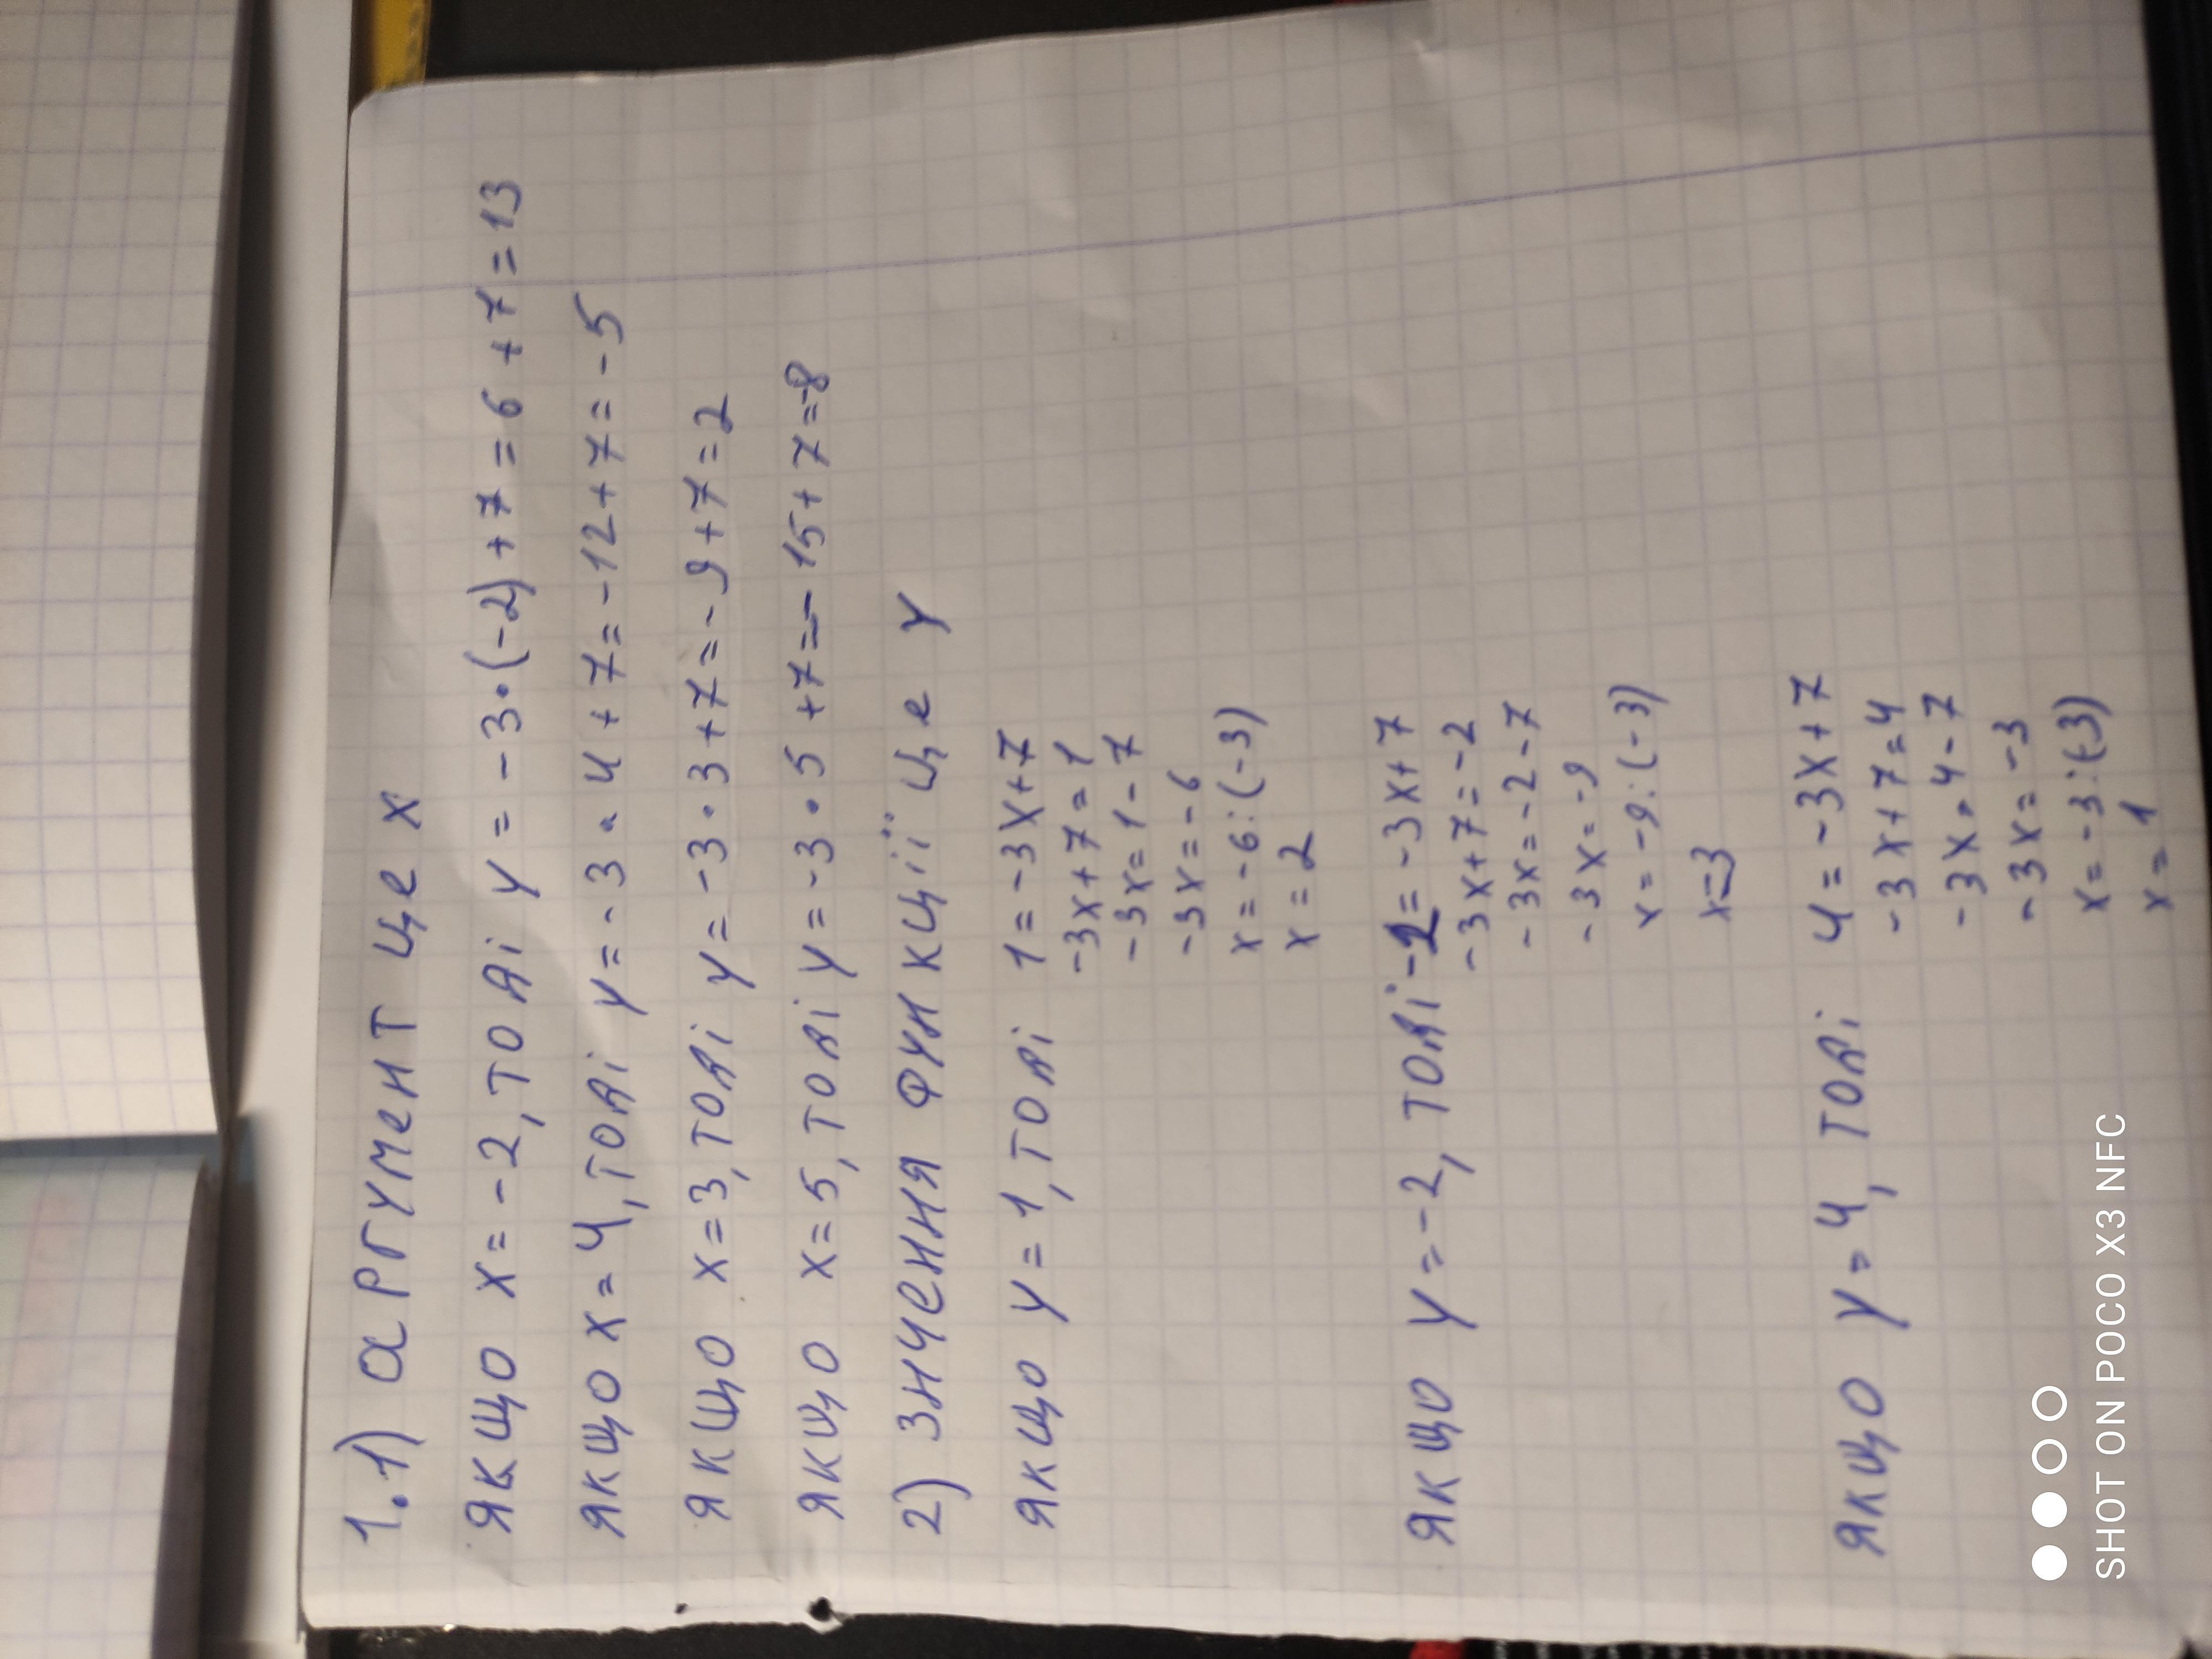 1.1) аргумент це x
якщо x=-2, тоді y=-3·(-2)+7=6+7=13
якщо x=4, тоді y=-3·4+7=-12+7=-5
якщо x=3, тоді y=-3·3+7=-9+7=2
якщо x=5, тоді y=-3·5+7=-15+7=-8
2) знчення функції це y
якщо y=1, тоді 1=-3x+7
-3x+7=1
-3x=1-7
-3x=-6
x=-6:(-3)
x=2
якщо y=-2, тоді -2=-3x+7
-3x+7=-2
-3x=-2-7
-3x=-9
x=-9:(-3)
x=3
якщо y=4, тоді 4=-3x+7
-3x+7=4
-3x=4-7
-3x=-3
x=-3:(-3)
x=1
SHOT ON POCO X3 NFC